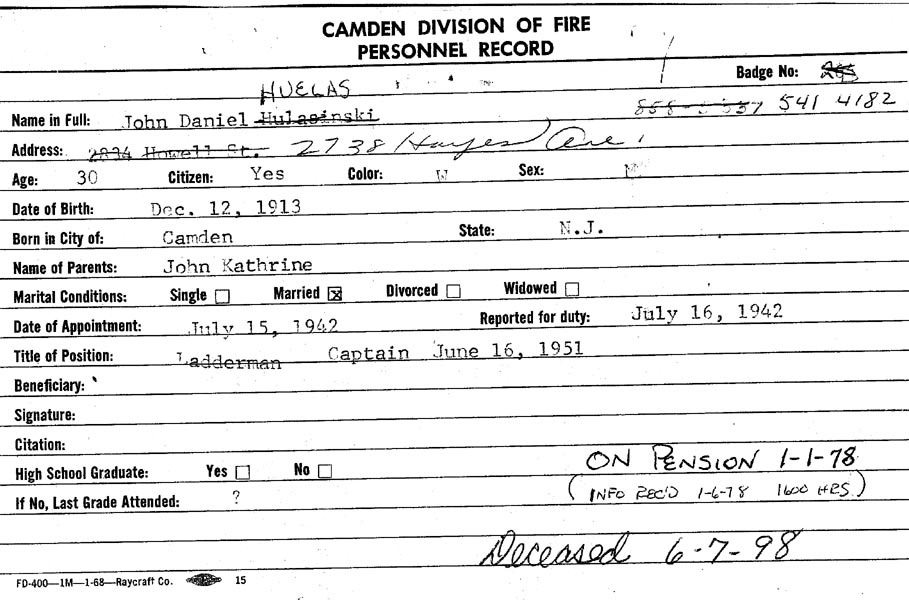 CAMDEN DIVISION OF FIRE
PERSONNEL RECORD
Badge No:
HUELAS
Name in Full: John Daniel Hulasinski 541 4182
Address: 2834 Howell St. 2738 Hayes Ave.
Age: 30 Citizen: Yes Color: W Sex: M
Date of Birth: Dec. 12, 1913
Born in City of: Camden State: N.J.
Name of Parents: John Kathrine
Marital Conditions: Single Married Divorced Widowed
Date of Appointment: July 15, 1942 Reported for duty: July 16, 1942
Title of Position: Ladderman Captain June 16, 1951
Beneficiary:
Signature:
Citation:
High School Graduate: Yes No ON PENSION 1-1-78
If No, Last Grade Attended: ? (INFO REC'D 1-6-78 1600 HRS.)
Deceased 6-7-98
FD-400—1M—1-68—Raycraft Co. 15